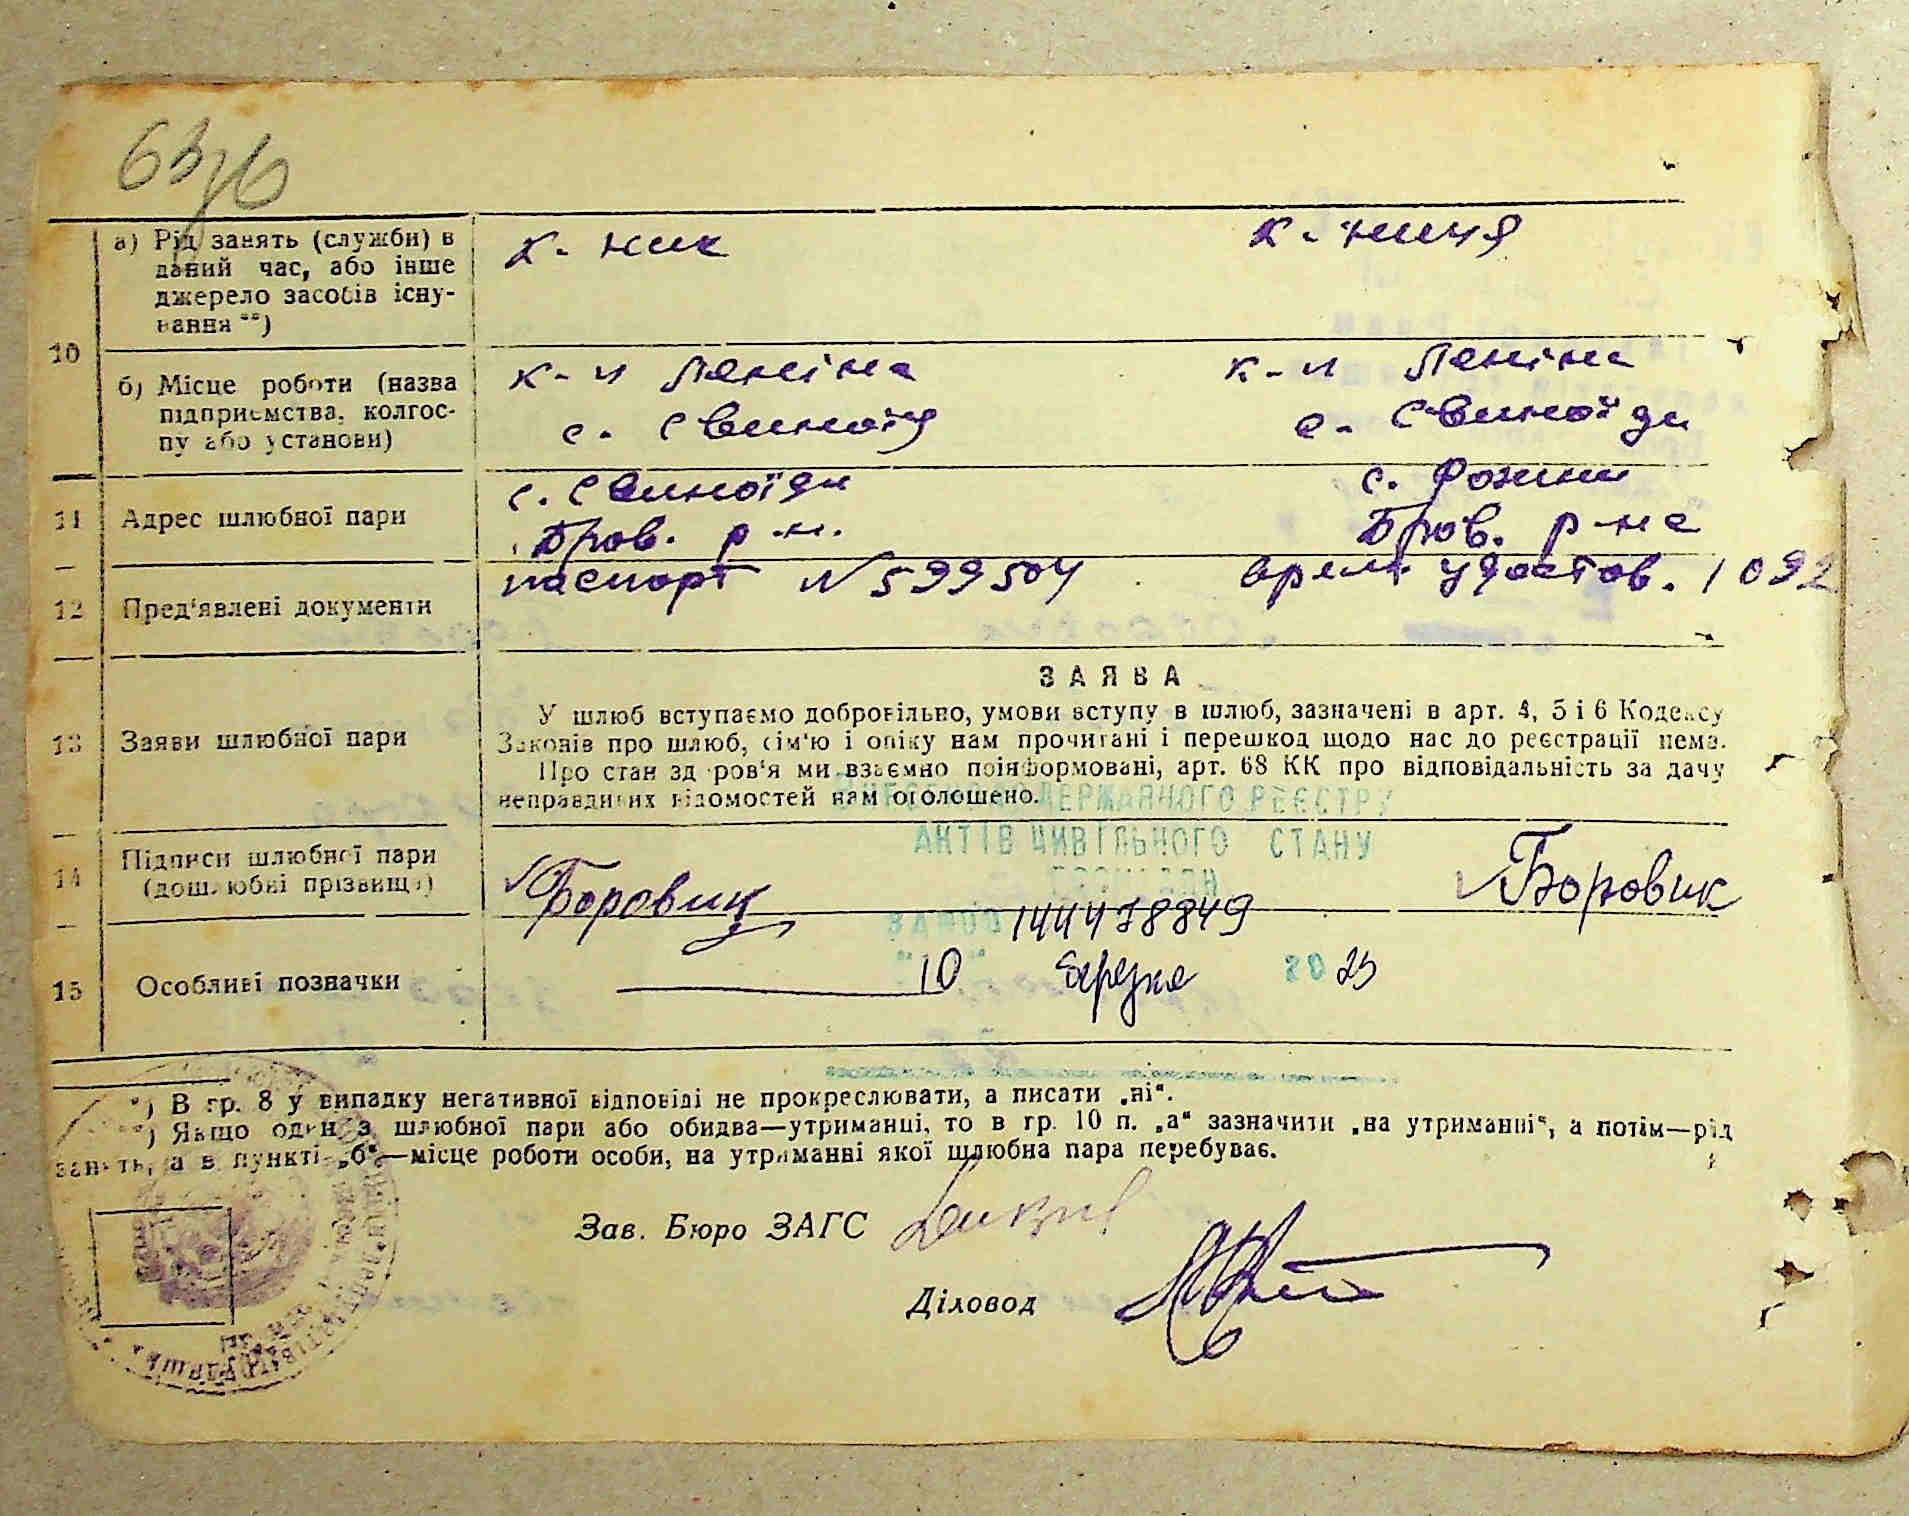 10
а) Рід занять (служби) в
даний час, або інше
джерело засобів існу-
вання **)
к-ник
к-ниця
б) Місце роботи (назва
підприємства, колгос-
пу або установи)
к-п Леніна
к-п Леніна
с. Свиноїди
с. Свиноїди
11 Адрес шлюбної пари
с. Свиноїди
с. Рожни
Бров. р-н.
Бров. р-на
12 Пред'явлені документи
паспорт N 599504
удостов. 1092
13 Заяви шлюбної пари
ЗАЯВА
У шлюб вступаємо добровільно, умови вступу в шлюб, зазначені в арт. 4, 5 і 6 Кодексу
Законів про шлюб, сім'ю і опіку нам прочитані і перешкод щодо нас до реєстрації нема.
Про стан здоров'я ми взаємно поінформовані, арт. 68 КК про відповідальність за дачу
неправдивих відомостей нам оголошено.
ДЕРЖАВНОГО РЕЄСТРУ
АКТІВ ЦИВІЛЬНОГО СТАНУ
14 Підписи шлюбної пари
(дошлюбні прізвища)
Боровик
Боровик
144478849
15 Особливі позначки
10 березня 2023
*) В гр. 8 у випадку негативної відповіді не прокреслювати, а писати „ні“.
**) Якщо один з шлюбної пари або обидва—утриманці, то в гр. 10 п. „а“ зазначити „на утриманні“, а потім—рід
занять, а в пункті „б“—місце роботи особи, на утриманні якої шлюбна пара перебуває.
Зав. Бюро ЗАГС
Діловод